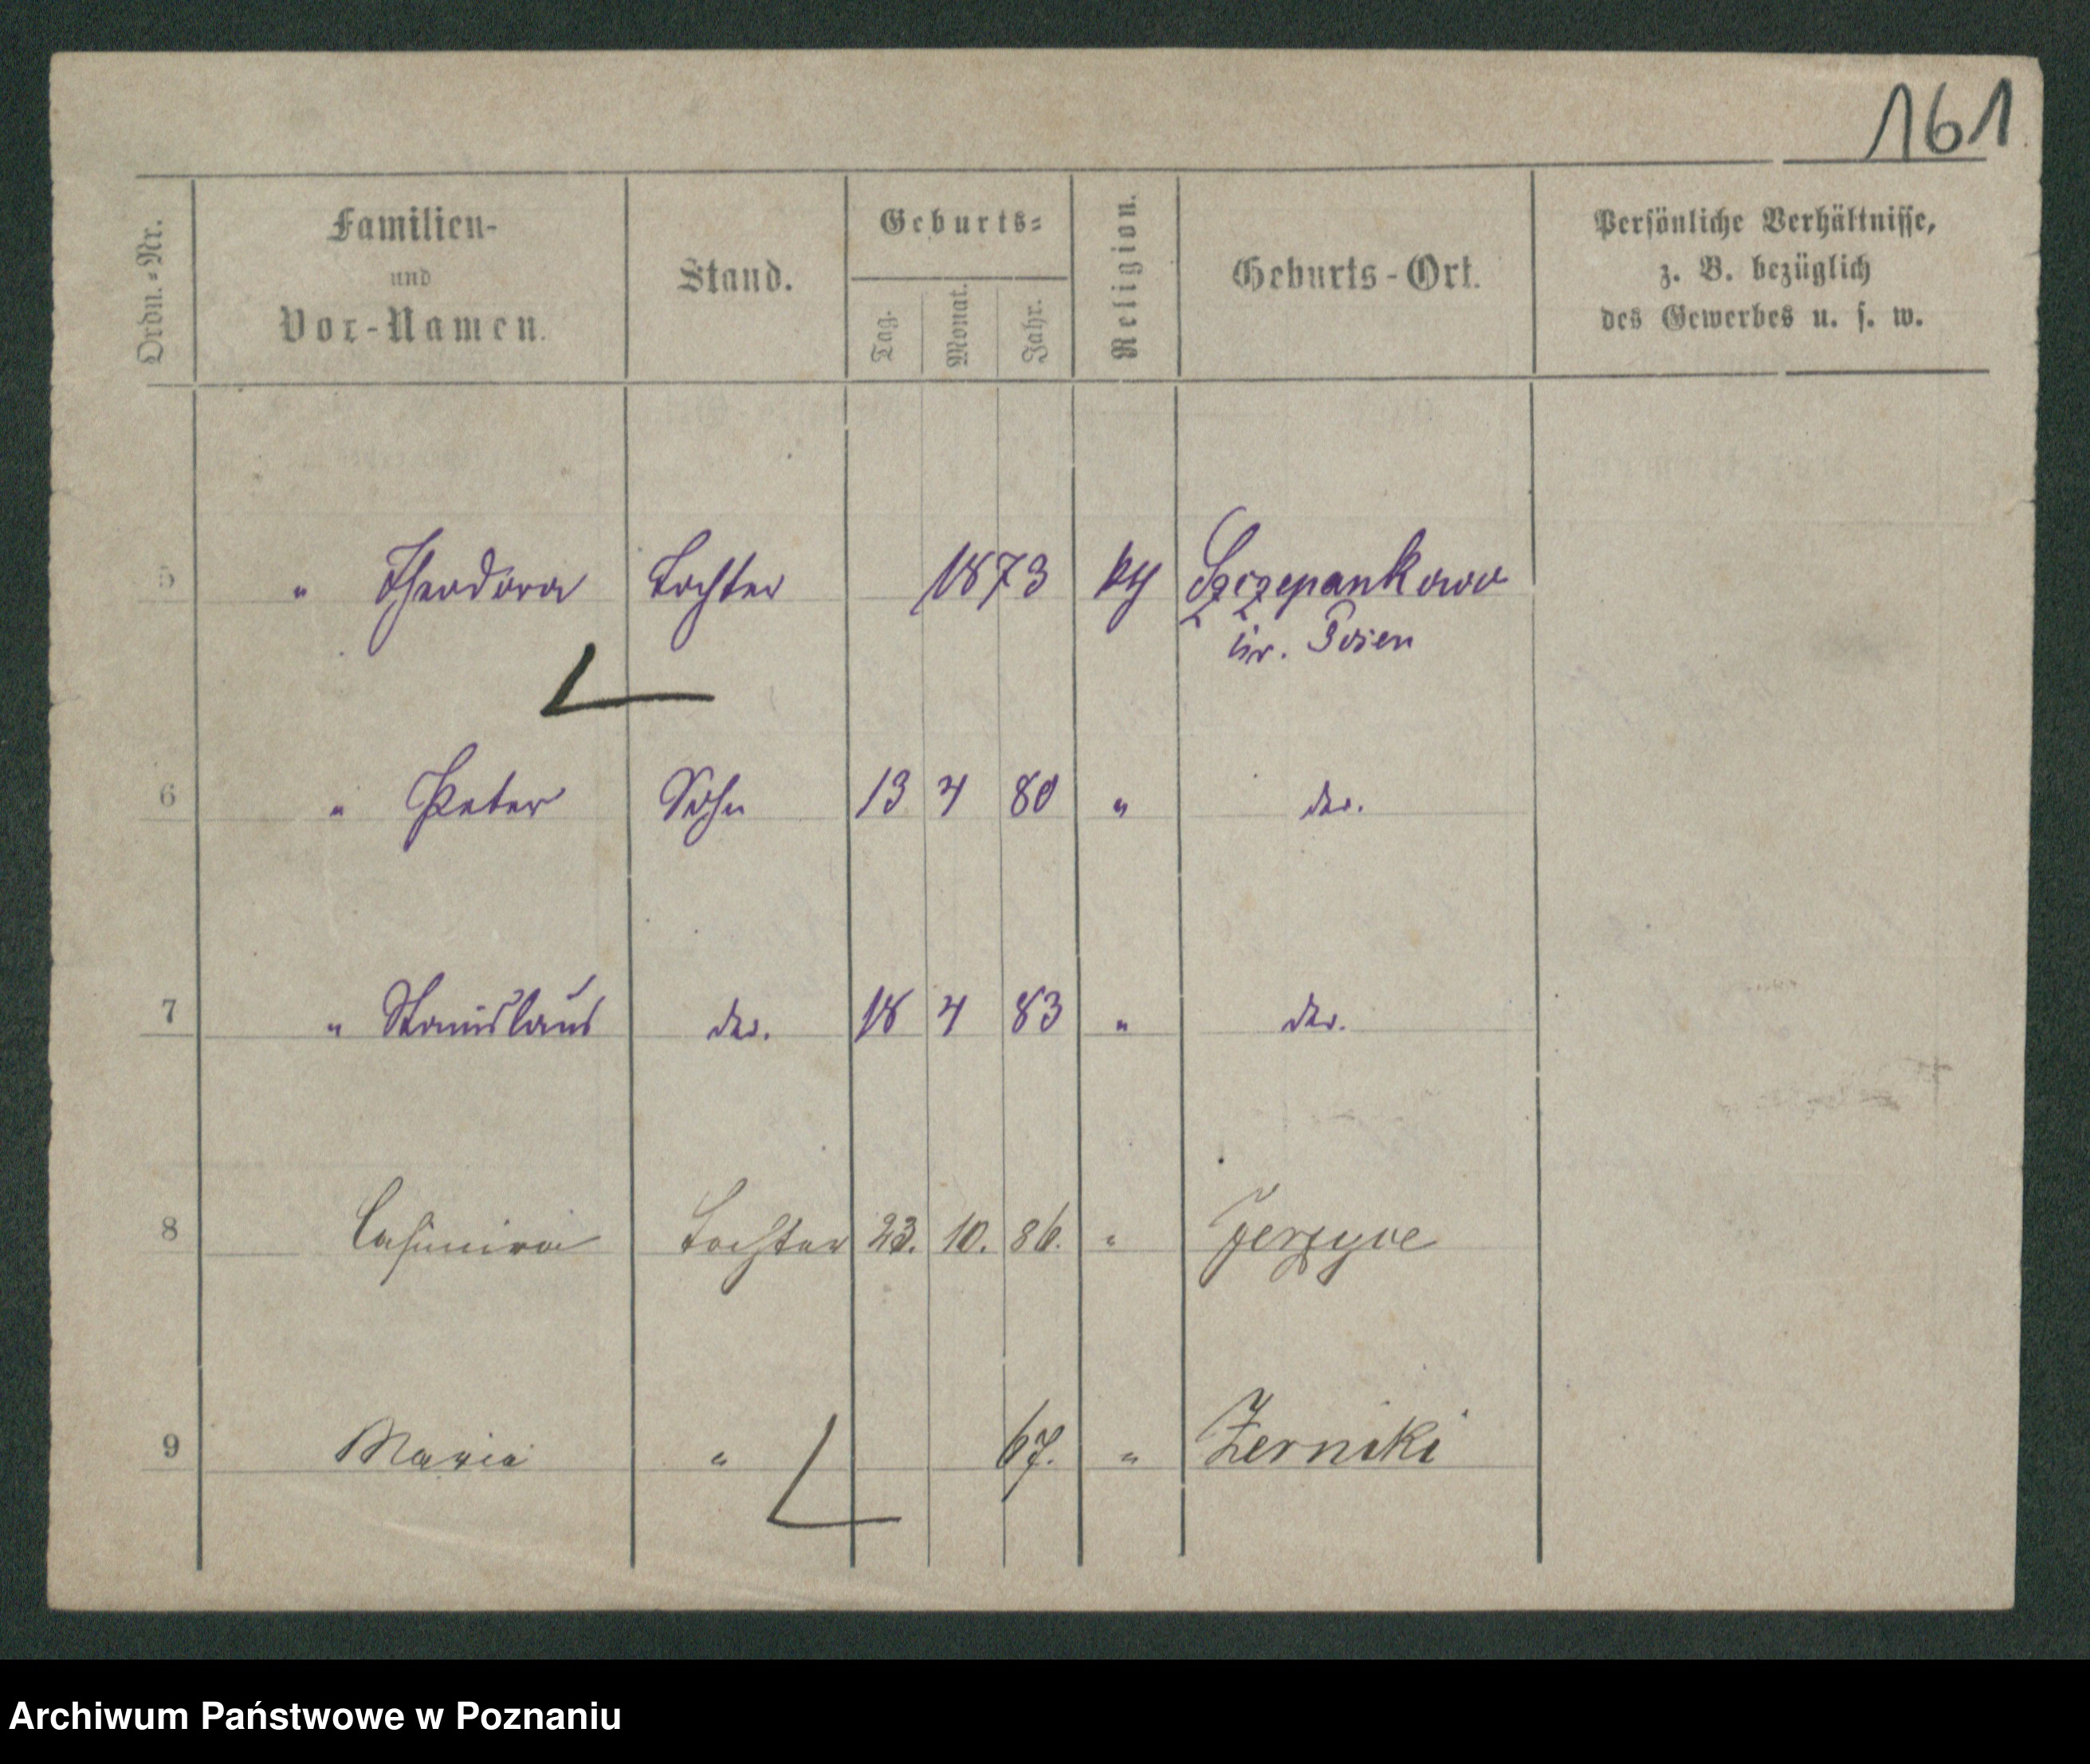 161
Ordn.-Nr.
Familien-
und
Vor-Namen.
Stand.
Geburts-
Tag.
Monat.
Jahr.
Religion.
Geburts-Ort.
Persönliche Verhältnisse,
z. B. bezüglich
des Gewerbes u. s. w.
5 " Theodora Tochter 1873 Szczepankowo
Kr. Posen
6 " Peter Sohn 13 4 80 " do.
7 " Stanislaus do. 18 4 83 " do.
8 Casimira Tochter 23. 10. 86. " Jerzyce
9 Maria " 67. " Zerniki
Archiwum Państwowe w Poznaniu